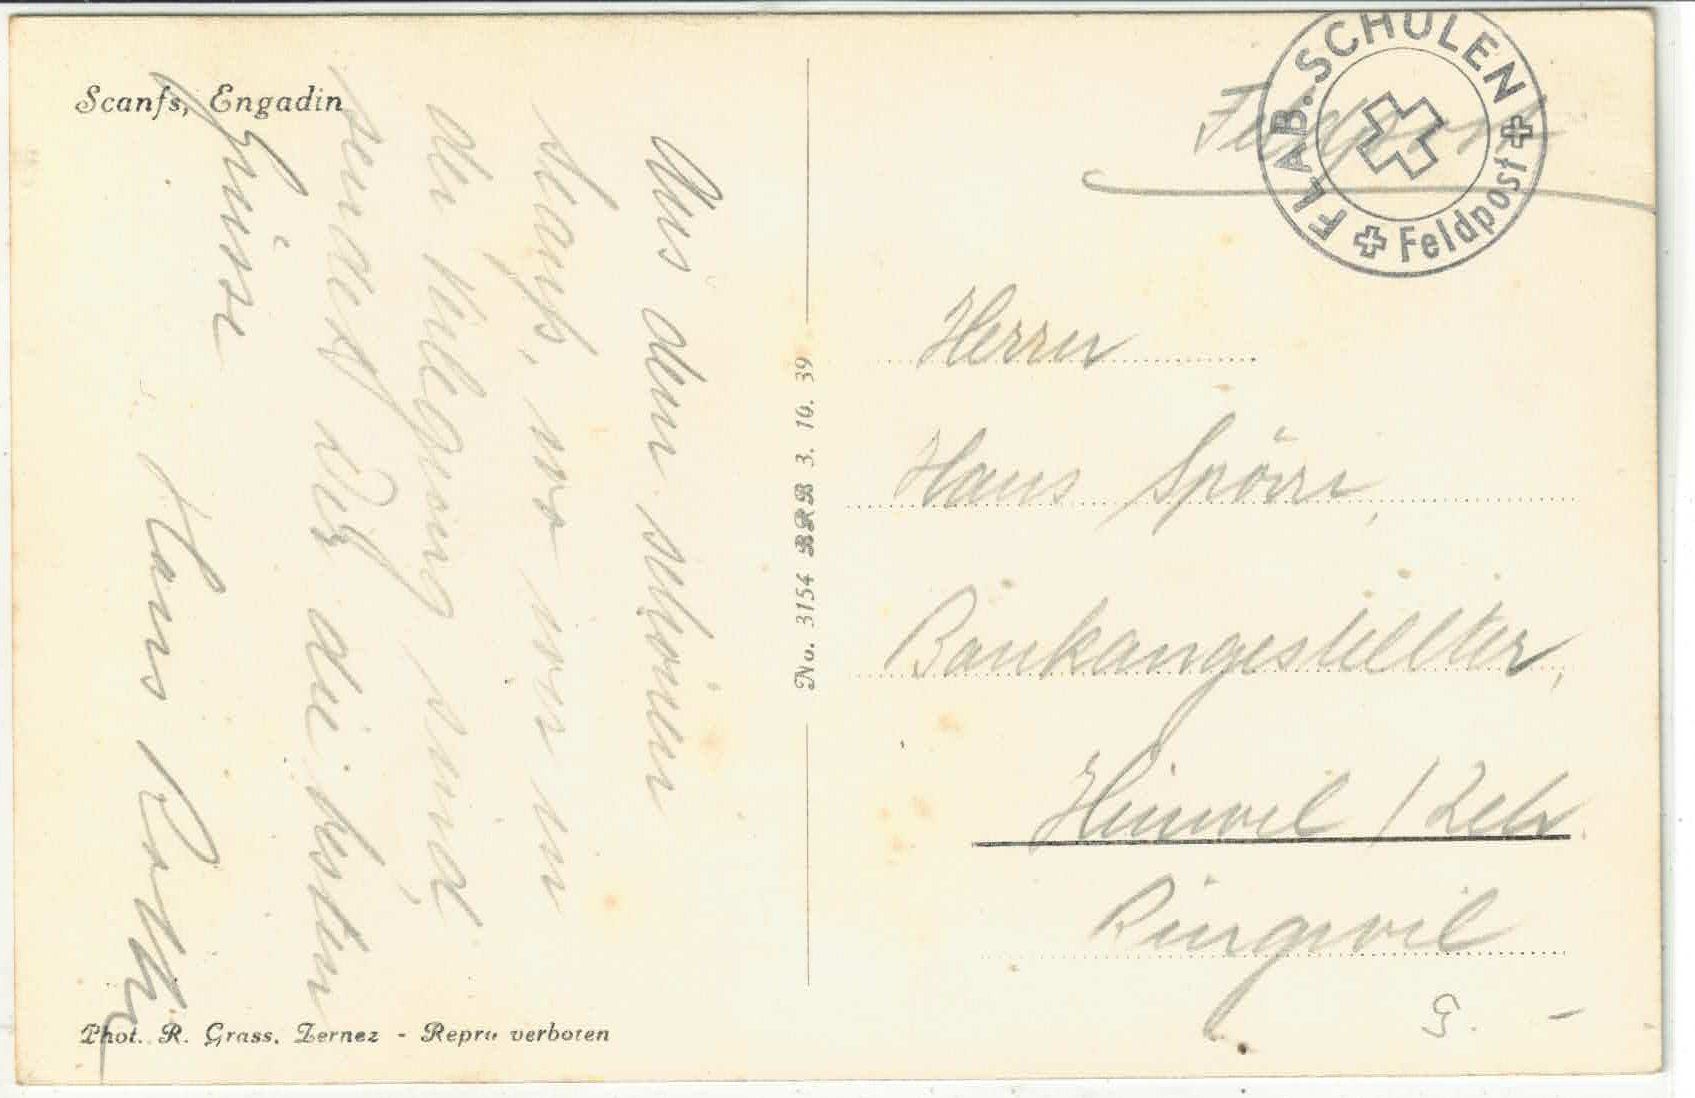 Scanfs, Engadin
Aus dem schönen
Scanfs, wo wir in
der Verlegung sind
sendet Dir die besten
Grüsse
Hans
No. 3154 BRB 3. 10. 39
Phot. R. Grass, Zernez - Repro verboten
Feldpost
FLAB. SCHULEN
Feldpost
Herrn
Hans Spörri,
Bankangestellter,
Hinwil / Zch
Ringwil
G. -